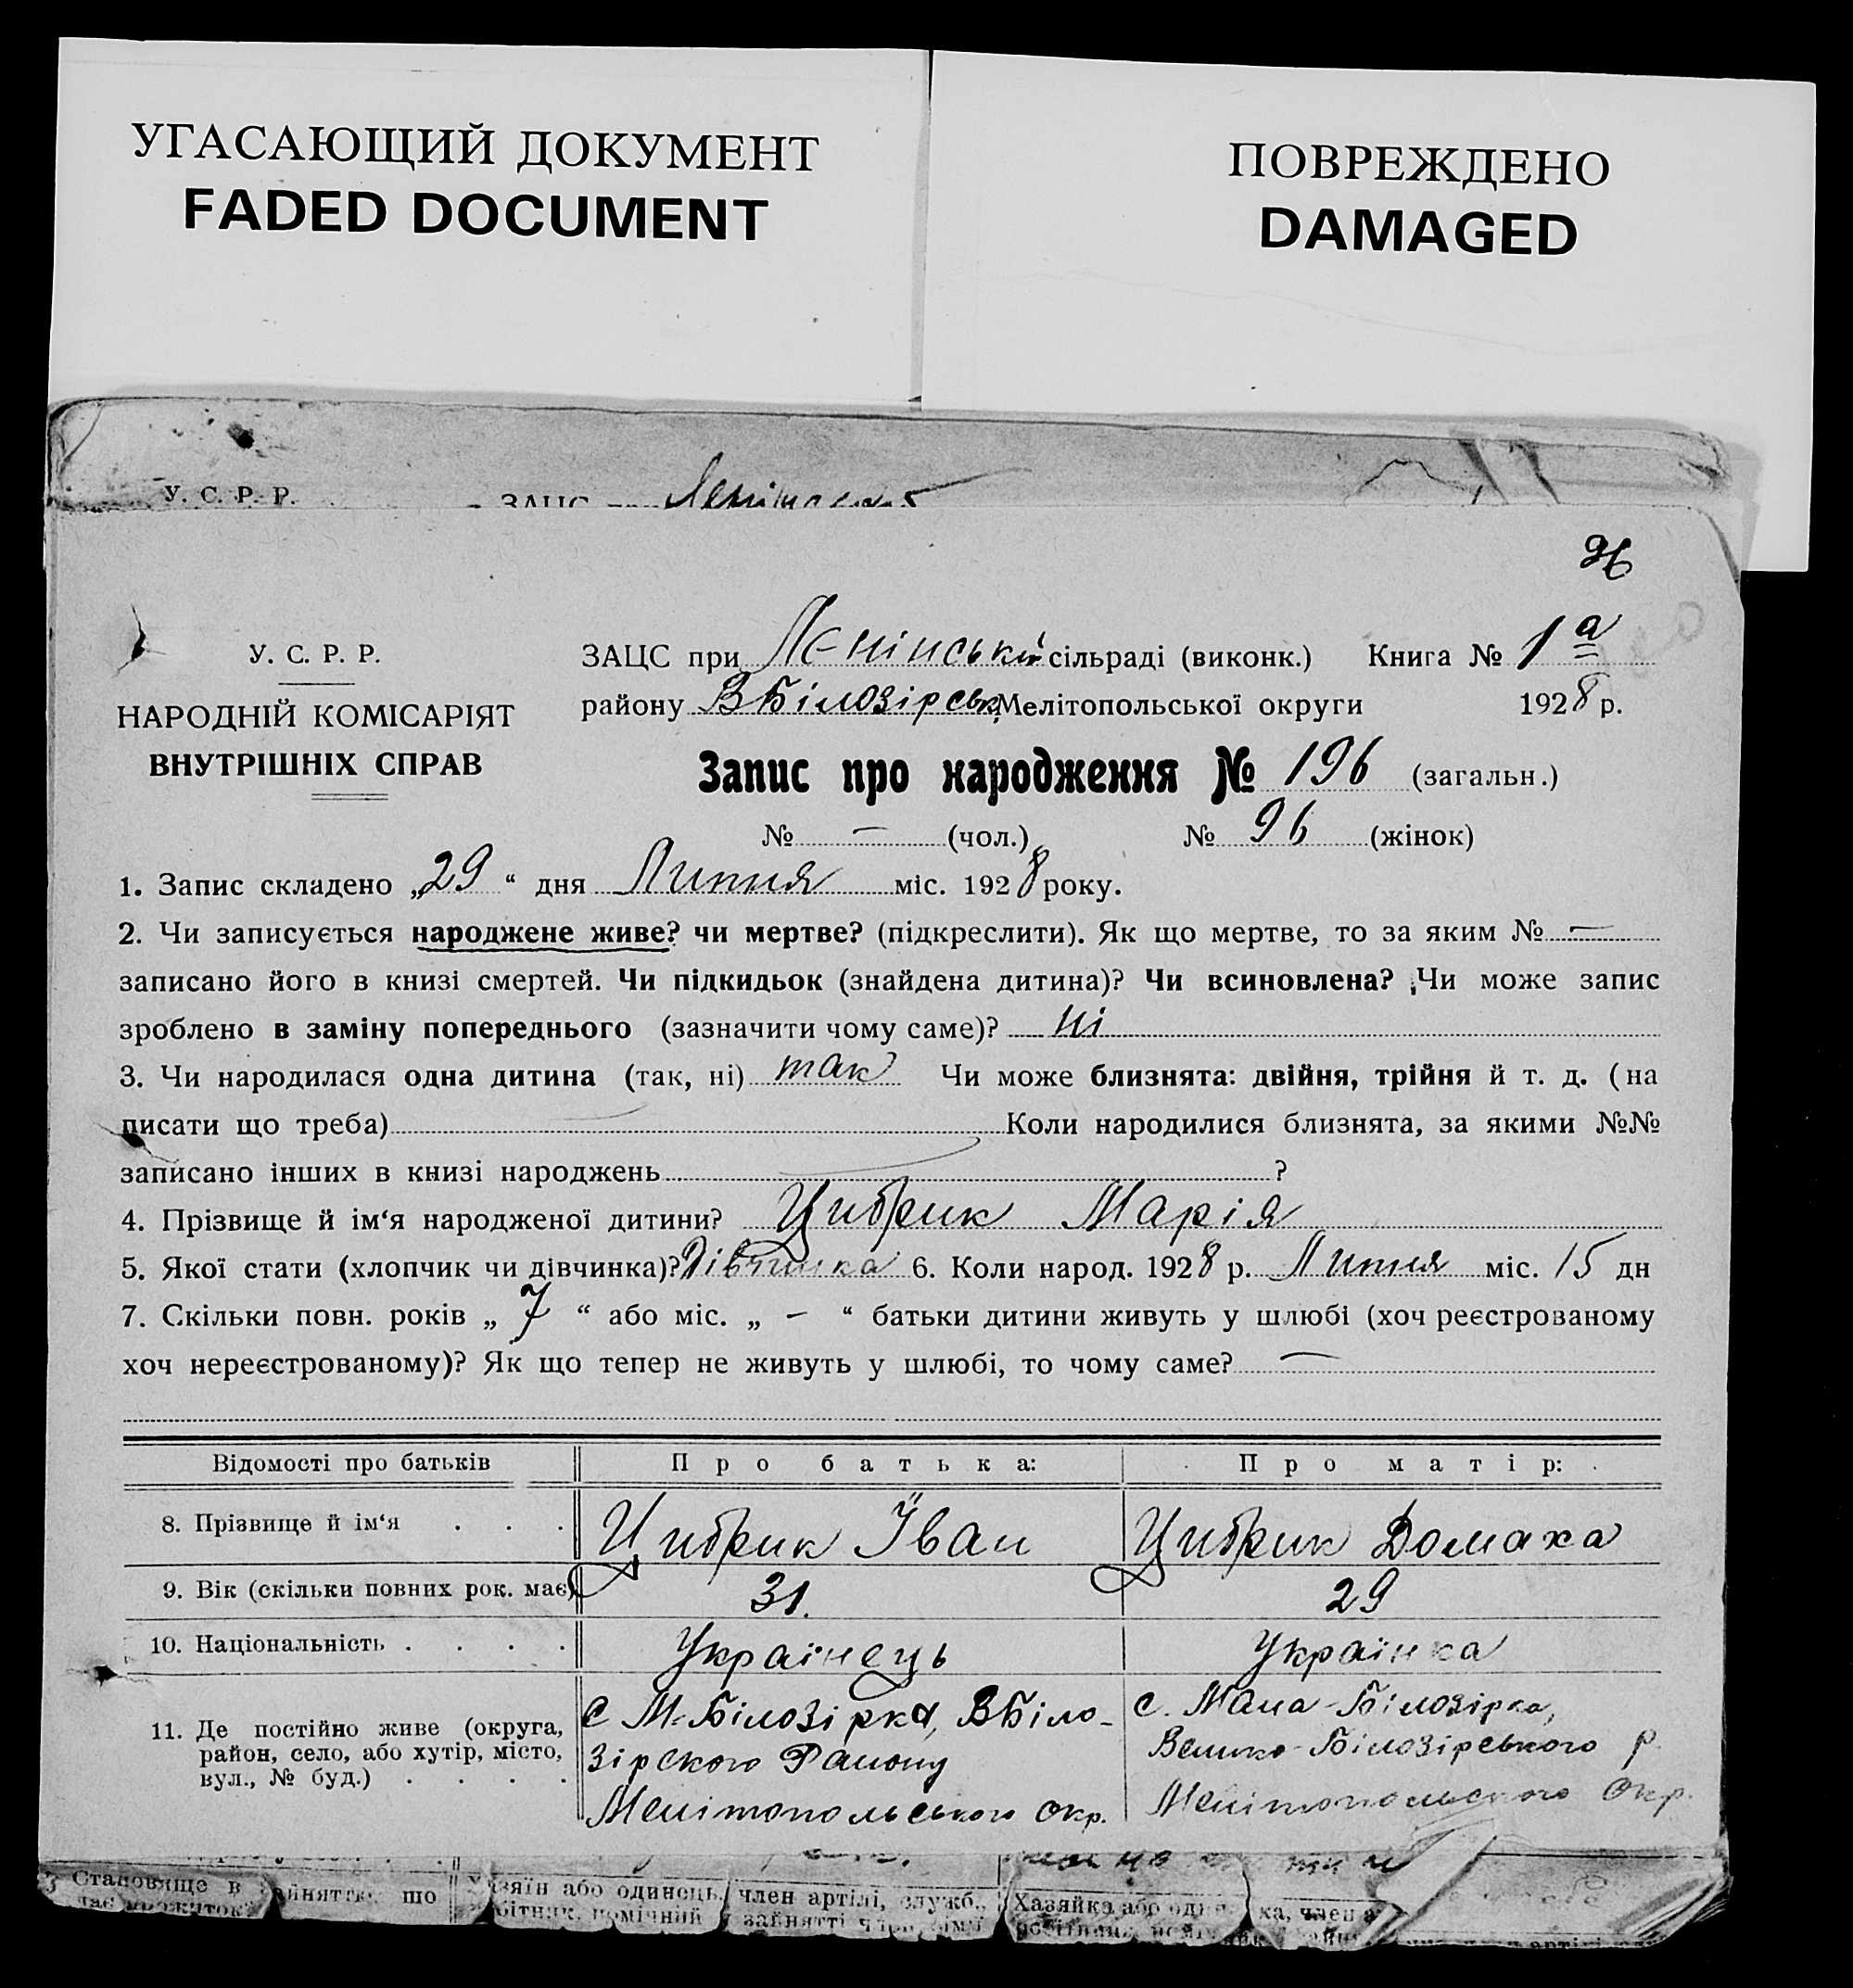 УГАСАЮЩИЙ ДОКУМЕНТ
FADED DOCUMENT
ПОВРЕЖДЕНО
DAMAGED
У. С. Р. Р.
ЗАЦС при
У. С. Р. Р.
НАРОДНІЙ КОМІСАРІЯТ
ВНУТРІШНІХ СПРАВ
ЗАЦС при Ленінській сільраді (виконк.) Книга № 1 а
району ВБілозірськ. Мелітопольської округи 1928 р.
Запис про народження № 196 (загальн.)
№ — (чол.) № 96 (жінок)
1. Запис складено „29“ дня Липня міс. 1928 року.
2. Чи записується народжене живе? чи мертве? (підкреслити). Як що мертве, то за яким № —
записано його в книзі смертей. Чи підкидьок (знайдена дитина)? Чи всиновлена? Чи може запис
зроблено в заміну попереднього (зазначити чому саме)? ні
3. Чи народилася одна дитина (так, ні) так Чи може близнята: двійня, трійня й т. д. (на
писати що треба) Коли народилися близнята, за якими №№
записано інших в книзі народжень ?
4. Прізвище й ім‘я народженої дитини? Цибрик Марія
5. Якої стати (хлопчик чи дівчинка)? Дівчинка 6. Коли народ. 1928 р. Липня міс. 15 дн
7. Скільки повн. років „ 7 “ або міс. „ — “ батьки дитини живуть у шлюбі (хоч реєстрованому
хоч нереєстрованому)? Як що тепер не живуть у шлюбі, то чому саме? —
Відомості про батьків Про батька: Про матір:
8. Прізвище й ім‘я . . . Цибрик Їван Цибрик Домаха
9. Вік (скільки повних рок. має) 31. 29
10. Національність . . . . Українець Українка
11. Де постійно живе (округа,
район, село, або хутір, місто,
вул., № буд.) . . . .
с М-Білозірка, ВБіло-
зірского Району
Мелітопольського окр.
с. Мала-Білозірка,
Велико-Білозірського р.
Мелітопольского Окр.
Становище в що
Хазяїн або одинець, член артілі, служб.,
помічний зайнятті
Хазяйка або